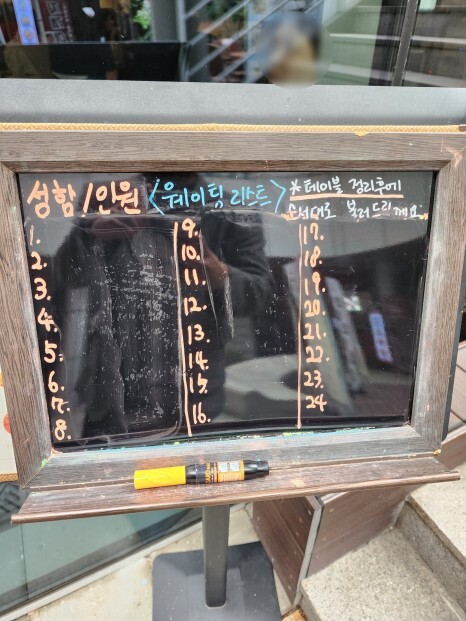 성함/인원 <웨이팅 리스트> ※테이블 정리후에
순서대로 불러드릴게요.
1.
2.
3.
4.
5.
6.
7.
8.
9.
10.
11.
12.
13.
14.
15.
16.
17.
18.
19.
20.
21.
22.
23.
24